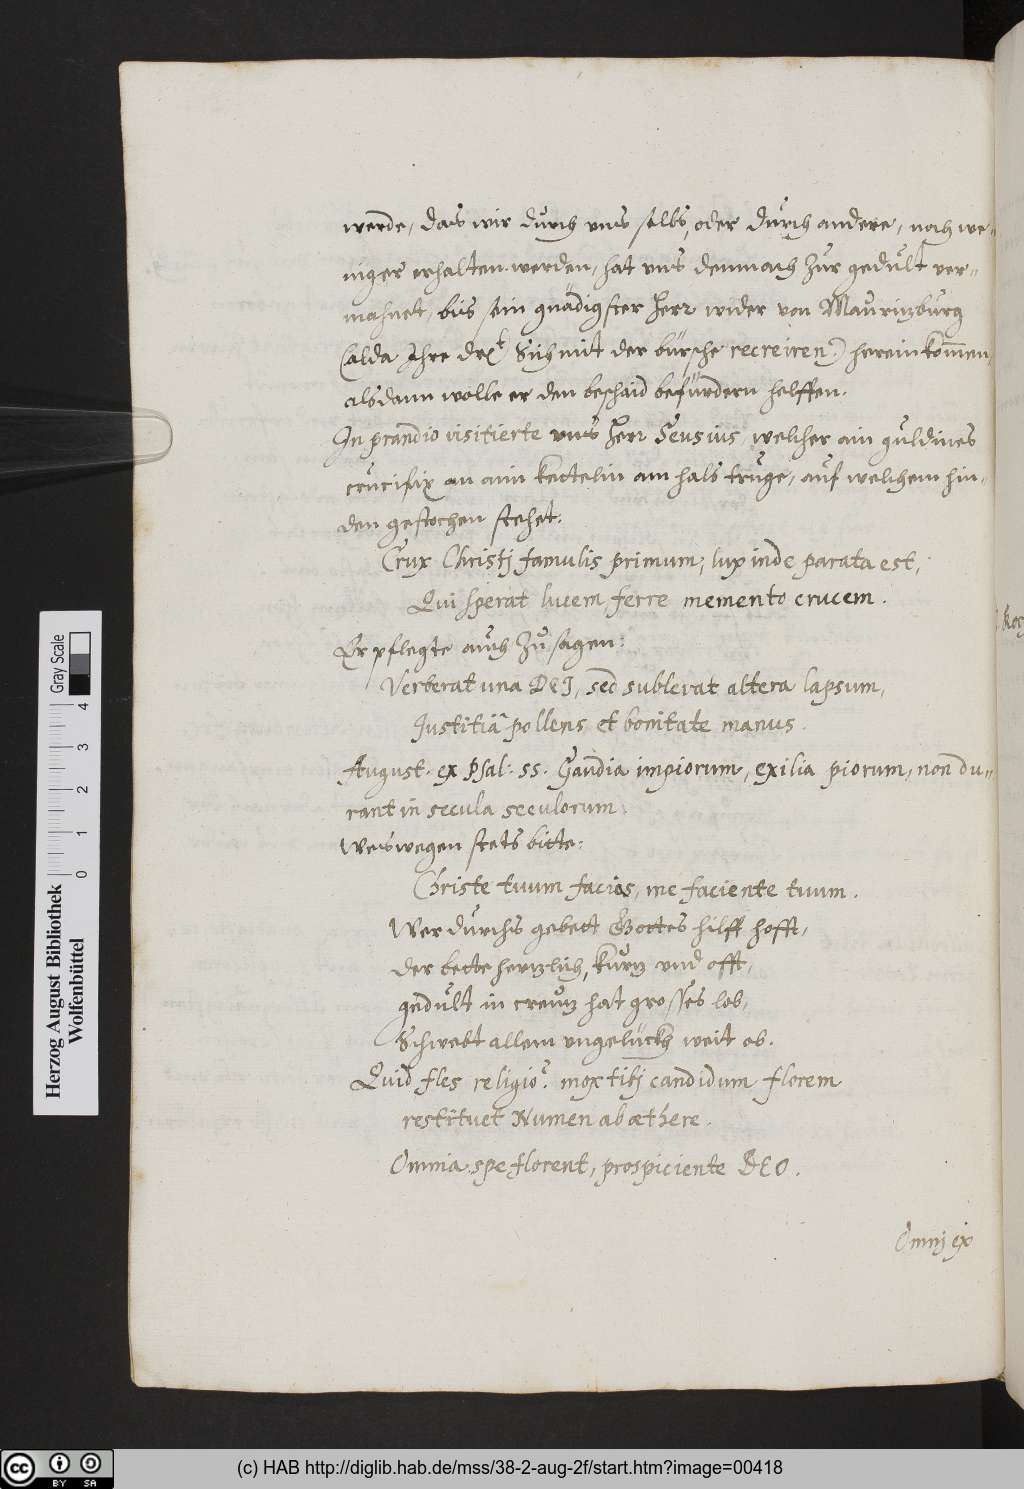 werde, das wir durch uns selbs, oder durch andere, noch we-
niger erhalten werden, hat uns demnach zur gedult ver-
mahnet, bis sein gnädigster Herr wider von Maurizburg
(alda Ihre Drlt Sich mit der bürsche recreiren) herein kommen,
alsdann wolle er den beschaid befürdern helffen.
In prandio visitierte uns Herr Seusius, welcher ain guldines
crucifix an aim kettelin am hals truge, auf welchem hin-
den gestochen stehet:
Crux Christj famulis primum, lux inde parata est,
Qui sperat lucem ferre memento crucem.
Er pflegte auch zu sagen:
Verberat una DEJ, sed sublevat altera lapsum,
Justitiâ pollens et bonitate manus.
August. ex Psal: 55. Gaudia impiorum, exilia piorum, non du-
rant in secula seculorum.
Weswegen stets bitte:
Christe tuum facies, me faciente tuum.
Wer durchs gebett Gottes hilff hofft,
der bette hertzlich, kurtz und offt,
gedult in creutz hat grosses lob,
Schwebt allem ungelückh weit ob.
Quid fles religio? mox tibj candidum florem
restituet Numen ab æthere.
Omnia spe florent, prospiciente DEO.
Omnj ex
Herzog August Bibliothek
Wolfenbüttel
0 1 2 3 4
Gray Scale
cc BY SA
(c) HAB http://diglib.hab.de/mss/38-2-aug-2f/start.htm?image=00418